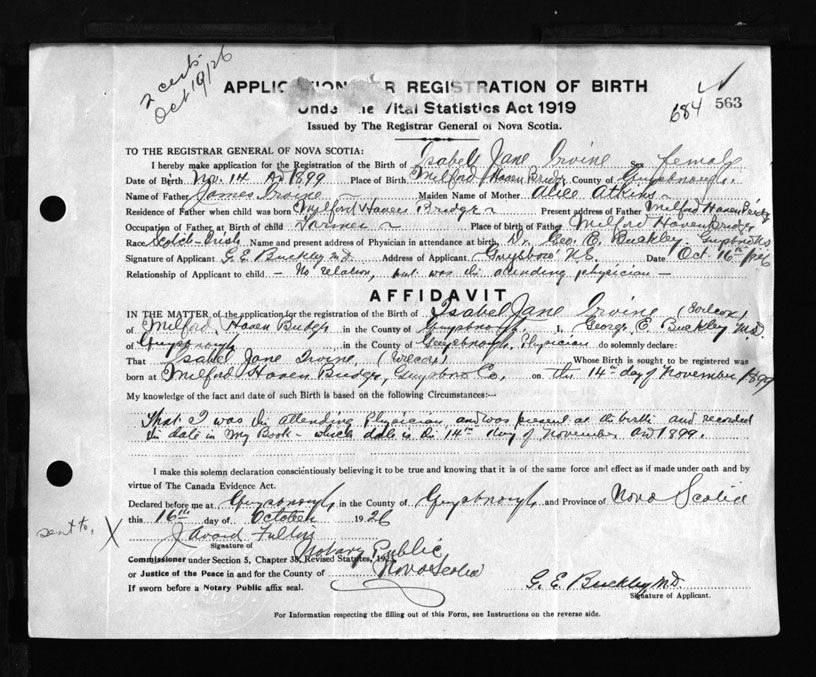 2 certs. Oct 19/26
APPLICATION FOR REGISTRATION OF BIRTH
Under the Vital Statistics Act 1919
Issued by The Registrar General of Nova Scotia.
684 563
TO THE REGISTRAR GENERAL OF NOVA SCOTIA:
I hereby make application for the Registration of the Birth of Isabel Jane Irvine Sex female
Date of Birth Nov. 14 AD 1899 Place of Birth Milford Haven Bridge County of Guysborough.
Name of Father James Irvine Maiden Name of Mother Alice Atkins
Residence of Father when child was born Mylford Haven Bridge Present address of Father Milford Haven Bridge
Occupation of Father at Birth of child Farmer Place of birth of Father Milford Haven Bridge
Race Scotch-Irish Name and present address of Physician in attendance at birth, Dr. Geo. E. Buckley, Guysboro NS
Signature of Applicant G E Buckley M.D. Address of Applicant Guysboro' N.S. Date Oct 16th 1926
Relationship of Applicant to child - No relation, but was the attending physician -
AFFIDAVIT
IN THE MATTER of the application for the registration of the Birth of Isabel Jane Irvine (Wilcox)
of Milford Haven Bridge in the County of Guysborough. I, George E. Buckley M.D.
of Guysborough in the County of Guysborough, Physician do solemnly declare:
That Isabel Jane Irvine (Wilcox) Whose Birth is sought to be registered was
born at Milford Haven Bridge, Guysboro Co. on the 14th day of November 1899
My knowledge of the fact and date of such Birth is based on the following Circumstances:—
That I was the attending Physician and was present at the birth and recorded
the date in my Book - which date is the 14th day of November AD 1899.
I make this solemn declaration conscientiously believing it to be true and knowing that it is of the same force and effect as if made under oath and by
virtue of The Canada Evidence Act.
Declared before me at Guysborough in the County of Guysborough and Province of Nova Scotia
this 16th day of October 1926
sent to, X
J Avard Fulton
Signature of Notary Public
Commissioner under Section 5, Chapter 38, Revised Statutes, 1923
or Justice of the Peace in and for the County of Nova Scotia
If sworn before a Notary Public affix seal.
G. E. Buckley M.D.
Signature of Applicant.
For Information respecting the filling out of this Form, see Instructions on the reverse side.